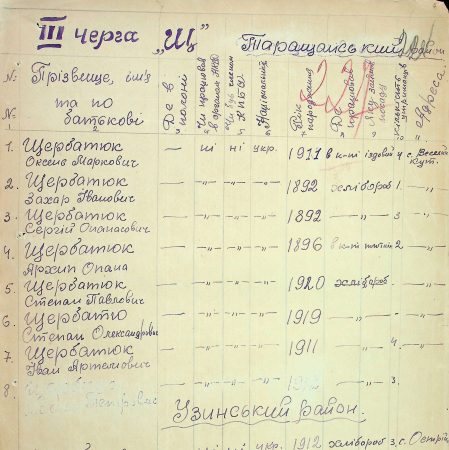 III черга "Щ" Таращанський район
№ Прізвище, ім'я та по батькові Де в полоні Чи працював в органах НКВС Чи був членом КПбУ Національність Рік народження Де працював Яку займав посаду адреса
1. Щербатюк Оксень Маркович — ні ні укр. 1911 в к-пі їздовий 4 с. Веселий Кут.
2. Щербатюк Захар Іванович — -"- -"- -"- 1892 хлібороб 1. -"-
3. Щербатюк Сергій Опанасович — -"- -"- -"- 1892 -"- 3 -"-
4. Щербатюк Архип Опана — -"- -"- -"- 1896 в к-пі 2. -"-
5. Щербатюк Степан Павлович — -"- -"- -"- 1920 хлібороб. -"-
6. Щербатю Степан Олександрович — -"- -"- -"- 1919 -"- -"-
7. Щербатюк Іван Артемович — -"- -"- -"- 1911 -"- 4. -"-
8. Петрович — -"- -"- -"- -"- 3. -"-
Узинський район.
укр. 1912 хлібороб 3, с. Острій